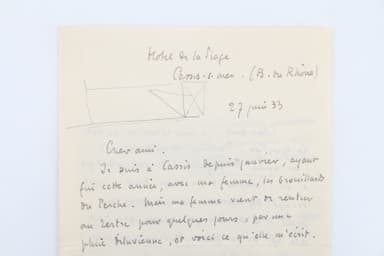 Hotel de la Plage
Cassis-s-mer. (B. du Rhône)
27 juin 33
Cher ami.
Je suis à Cassis depuis janvier, ayant
fui cette année, avec ma femme, les brouillards
du Perche. Mais ma femme vient de rentrer
au Tertre pour quelques jours, par une
pluie diluvienne, et voici ce qu'elle m'écrit.